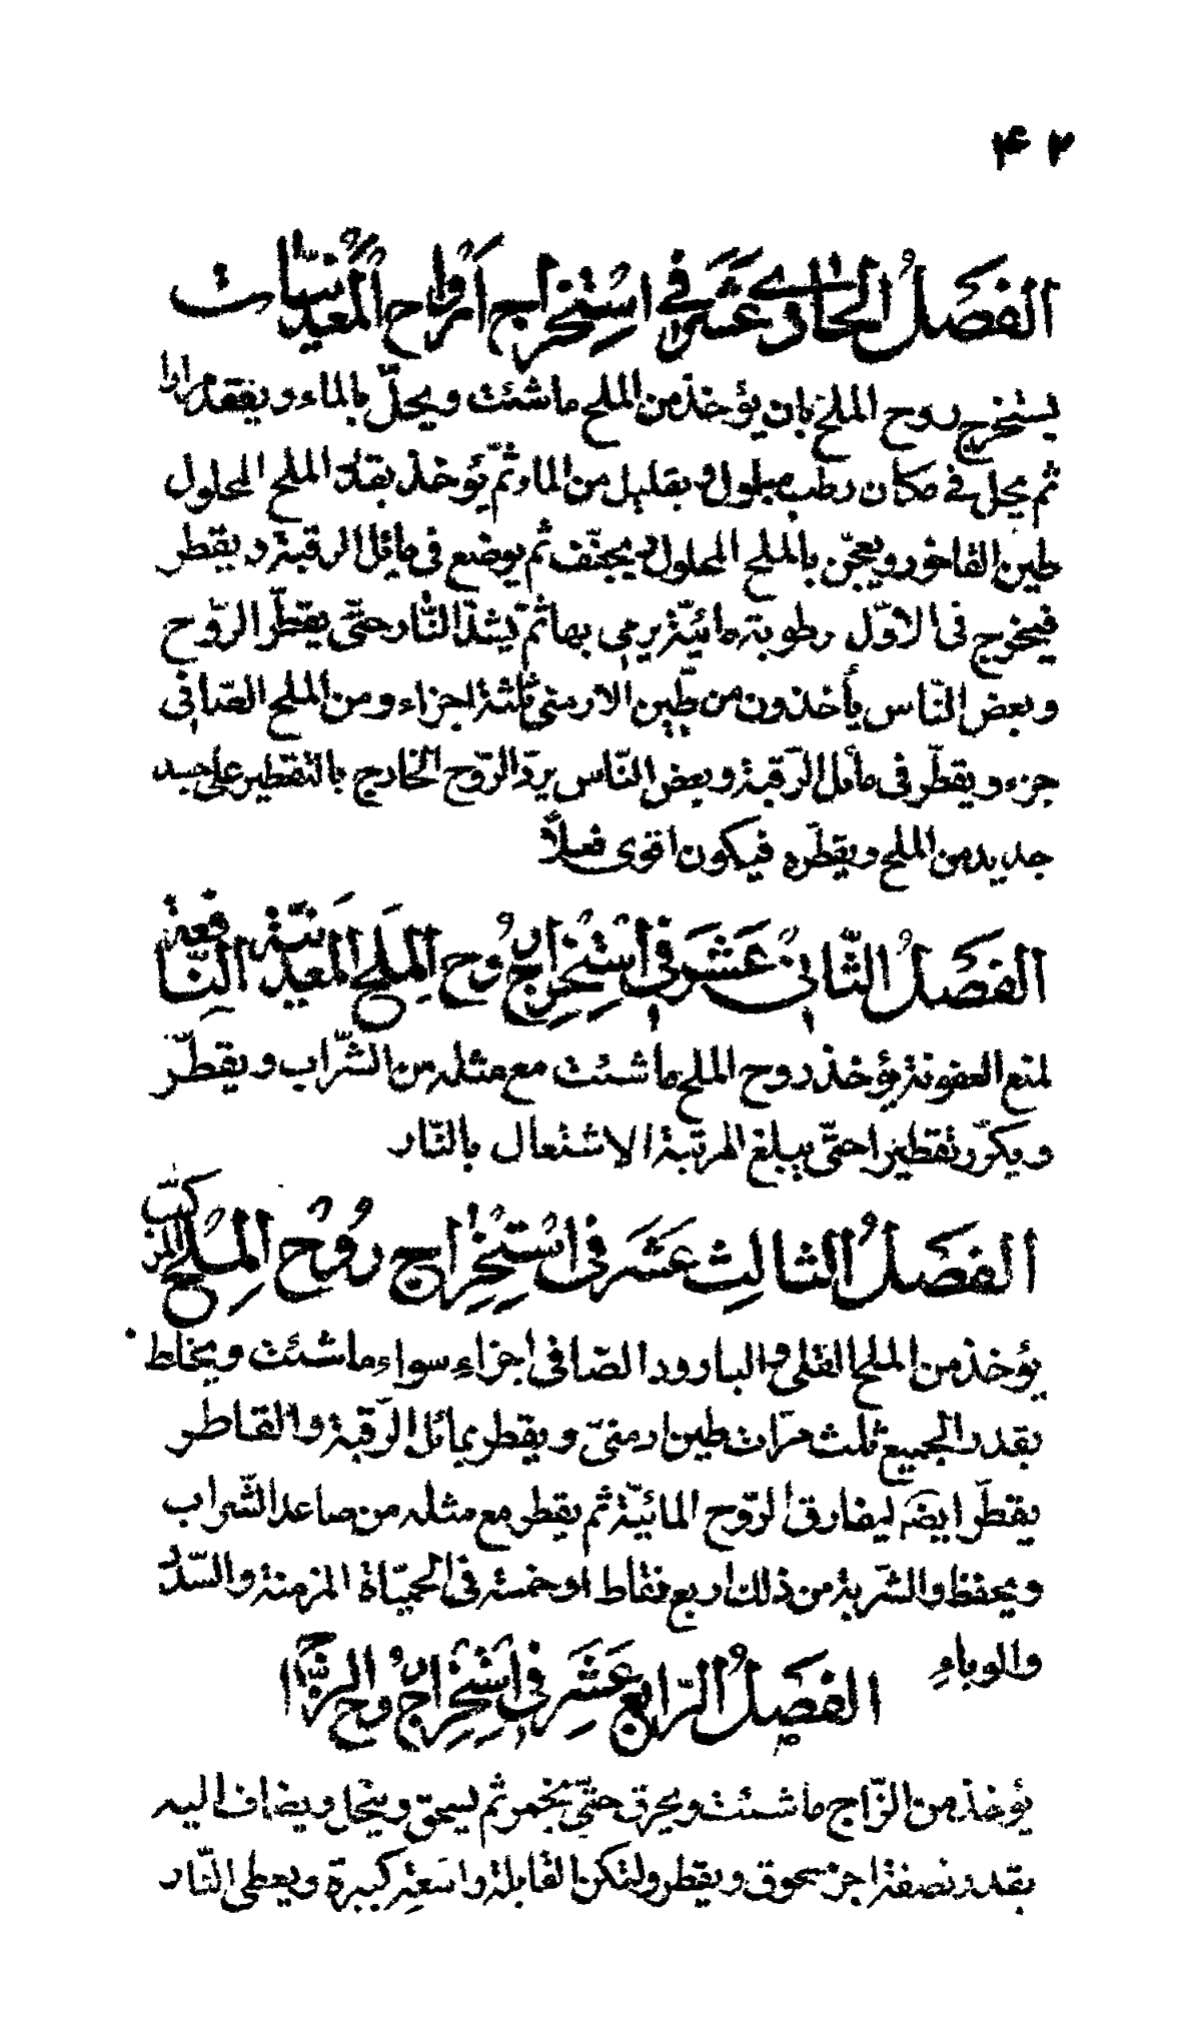 ۴۲
الفَصلُ الحادي عَشَر في اسْتخراج اَرْواح المُعدنيّات
يستخرج روح الملح بان يؤخذ من الملح ما شئت ويحلّ بالماء ويعقد مرارا
ثم يحل في مكان رطب مبلول و بقليل من الماء ثمّ يؤخذ بقدر الملح المحلول
طين الفاخور ويعجّن بالملح المحلول ويجفّف ثم يوضع في مائل الرقبة ويقطر
فيخرج في الاوّل رطوبة مائيّة يرمى بها ثمّ يشدّ النّار حتّى يقطّر الرّوح
وبعض النّاس يأخذون من طّين الارمنى ثلثة اجزاء ومن الملح الصّافى
جزء ويقطّر فى مائل الرّقبة وبعض النّاس يردّ الرّوح الخارج بالتقطير على جسد
جديد من الملح ويقطّره فيكون اقوى فعلاً
الفَصلُ الثّانىْ عَشَر فى اسْتِخراج رُوح المِلَح المَعدنيّة النّافعة
لمنع العفونة يؤخذ روح الملح ما شئت مع مثله من الشّراب ويقطّر
ويكرّر تقطيرا حتّى يبلغ المرتبة الاشتعال بالنّار
الفَصلُ الثالِث عَشَر فى اسْتِخْراج رُوْح المِلْح المركّب
يؤخذ من الملح القلى و البارود الصّافى اجزاء سواء ما شئت ويخلط
بقدر الجميع ثلث مرّات طين ارمنىّ ويقطر بمائل الرّقبة والقاطر
يقطّر ايضه ليفارق الرّوح المائيّة ثم يقطر مع مثله من صاعد الشّراب
ويحفظ والشّربة من ذلك اربع نقاط او خمسة فى الحميّاة المزمنة والسّدّ
والوباءِ
الفصلُ الرّابع عَشَر فى اسْتِخْراج رُوح الزّاج
يؤخذ من الزّاج ما شئت ويحرق حتّى يخمر ثم يسحق وينخل ويضاف اليه
بقدر نصفة اجر مسحوق ويقطر ولتكن القابلة واسعة كبيرة ويعطى النّار